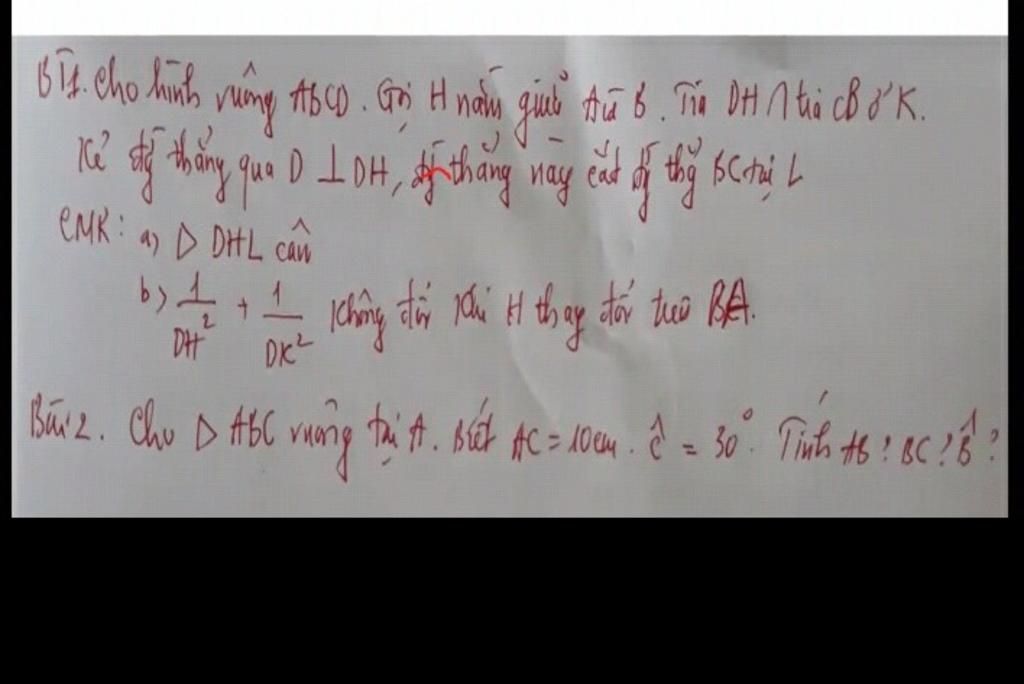 BT1. Cho hình vuông ABCD. Gọi H nằm giữa A và B. Tia DH ∩ tia CB ở K.
Kẻ đg thẳng qua D ⊥ DH, đg thẳng này cắt đg thg BC tại L
CMR: a) Δ DHL cân
b) 1/DH² + 1/DK² không đổi khi H thay đổi trên BA.
Bài 2. Cho Δ ABC vuông tại A. Biết AC = 10cm. Ĉ = 30°. Tính AB? BC? B̂?